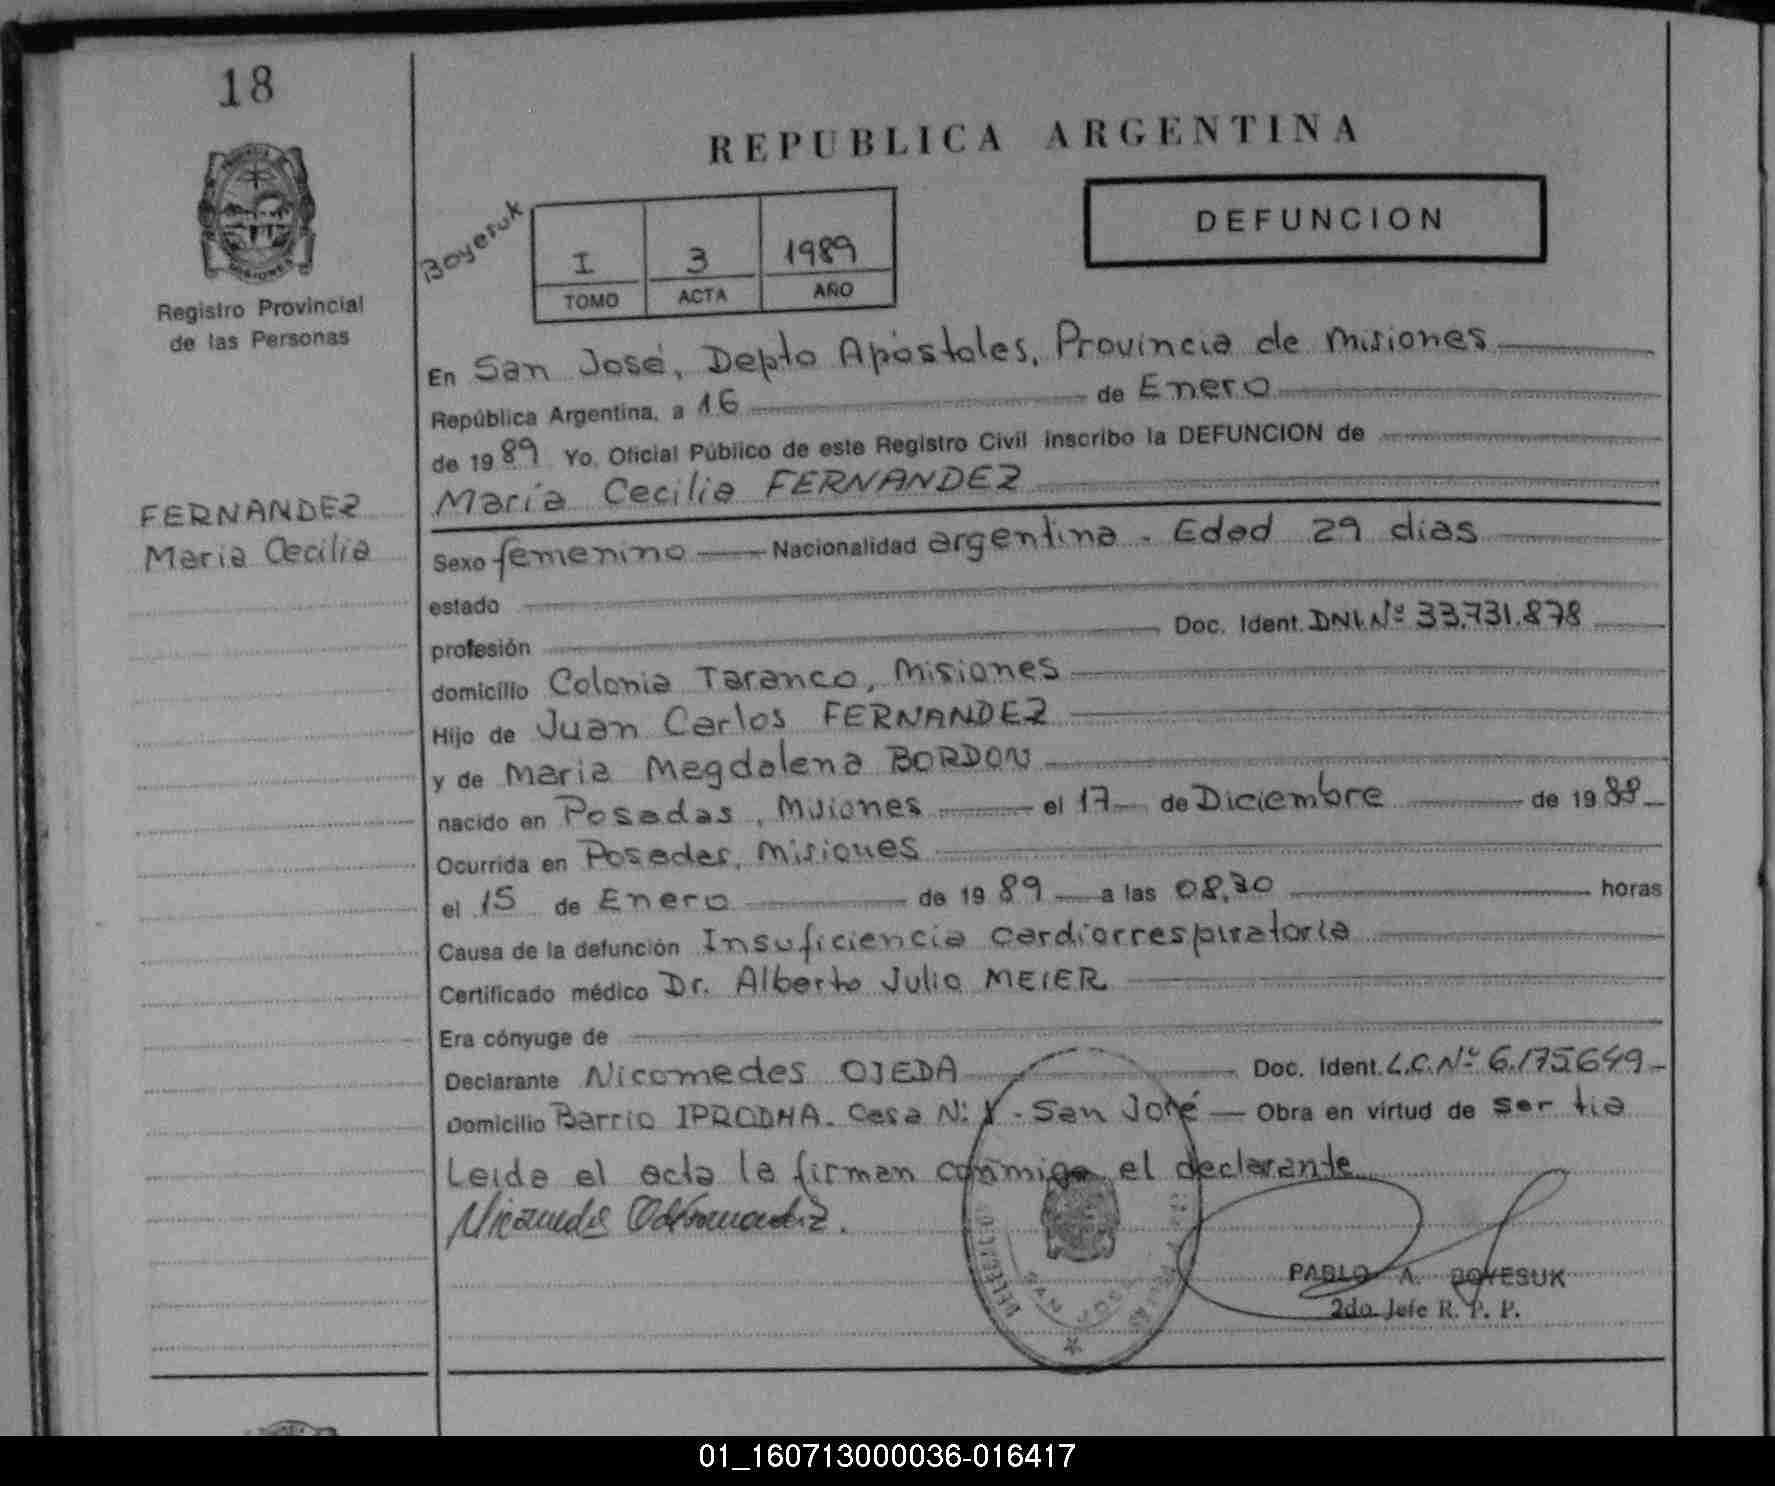 18
REPUBLICA ARGENTINA
Boyesuk
I 3 1989
TOMO ACTA AÑO
DEFUNCION
Registro Provincial
de las Personas
FERNANDEZ
Maria Cecilia
En San José, Depto Apóstoles, Provincia de Misiones
República Argentina, a 16 de Enero
de 1989 Yo, Oficial Público de este Registro Civil inscribo la DEFUNCION de
María Cecilia FERNANDEZ
Sexo femenino Nacionalidad argentina. Edad 29 dias
estado
profesión Doc. Ident. DNI. Nº 33.731.878
domicilio Colonia Taranco, Misiones
Hijo de Juan Carlos FERNANDEZ
y de Maria Magdalena BORDON
nacido en Posadas, Misiones el 17 de Diciembre de 1988
Ocurrida en Posadas, Misiones
el 15 de Enero de 1989 a las 08,30 horas
Causa de la defunción Insuficiencia cardiorrespiratoria
Certificado médico Dr. Alberto Julio MEIER
Era cónyuge de
Declarante Nicomedes OJEDA Doc. Ident. L.C. Nº 6.175.649
Domicilio Barrio IPRODHA. Casa Nº - San José Obra en virtud de ser tia
Leida el acta la firman conmigo el declarante
PABLO A. BOYESUK
2do. Jefe R. P. P.
SAN JOSE
01_160713000036-016417